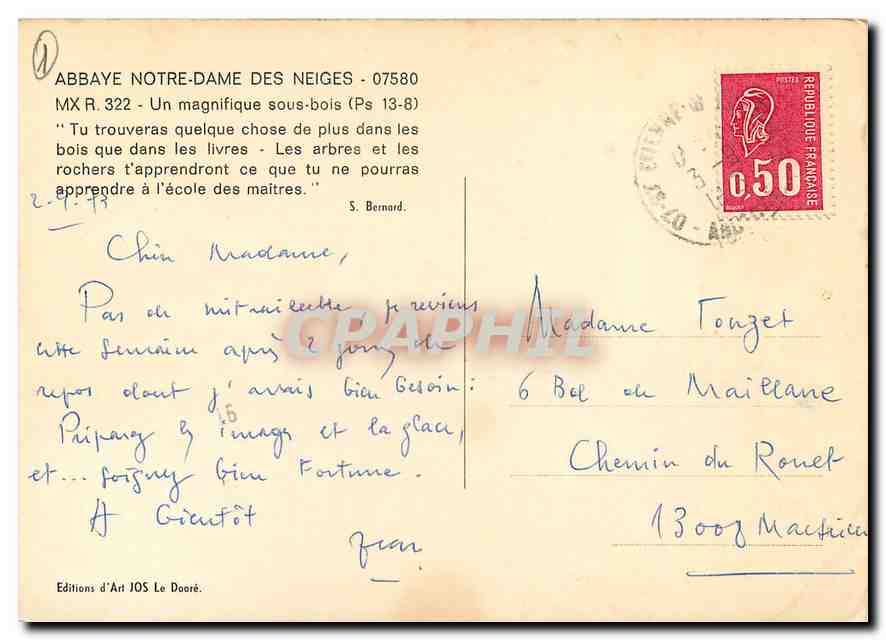 1
ABBAYE NOTRE-DAME DES NEIGES - 07580
MX R. 322 - Un magnifique sous-bois (Ps 13-8)
" Tu trouveras quelque chose de plus dans les
bois que dans les livres - Les arbres et les
rochers t'apprendront ce que tu ne pourras
apprendre à l'école des maîtres. "
S. Bernard.
Chère Madame,
Pas de mitraillette je reviens
cette semaine après 2 jours de
repos dont j'avais bien besoin :
Préparez les images et la glace,
et ... soignez bien Fortune.
A bientôt
Jean
Editions d'Art JOS Le Doaré.
POSTES
REPUBLIQUE FRANÇAISE
0,50
07-ST ETIENNE
Madame Touzet
6 Bd de Maillane
Chemin du Rouet
13008 Marseille
16
CPAPHIL